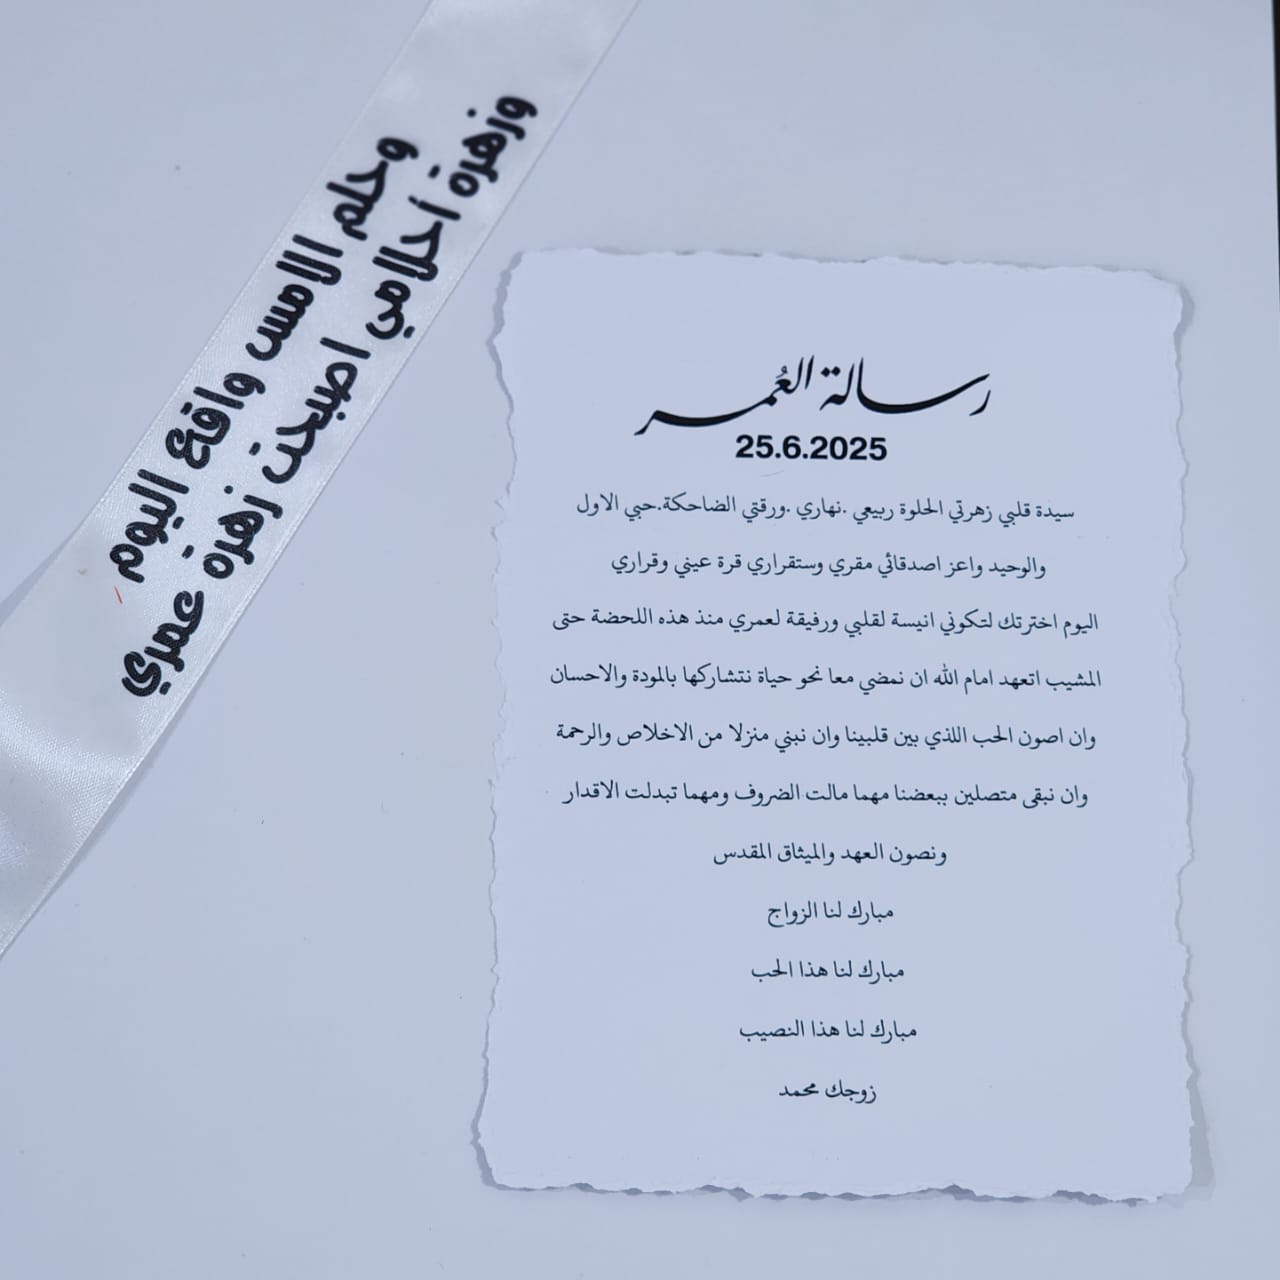 وحلم الامس واقع اليوم
وزهرة أحلامي اصبحت زهرة عمري
رسالة العُمر
25.6.2025
سيدة قلبي زهرتي الحلوة ربيعي .نهاري .ورقتي الضاحكة.حبي الاول
والوحيد واعز اصدقائي مقري وستقراري قرة عيني وقراري
اليوم اخترتك لتكوني انيسة لقلبي ورفيقة لعمري منذ هذه اللحضة حتى
المشيب اتعهد امام الله ان نمضي معا نحو حياة نتشاركها بالمودة والاحسان
وان اصون الحب اللذي بين قلبينا وان نبني منزلا من الاخلاص والرحمة
وان نبقى متصلين ببعضنا مهما مالت الضروف ومهما تبدلت الاقدار
ونصون العهد والميثاق المقدس
مبارك لنا الزواج
مبارك لنا هذا الحب
مبارك لنا هذا النصيب
زوجك محمد